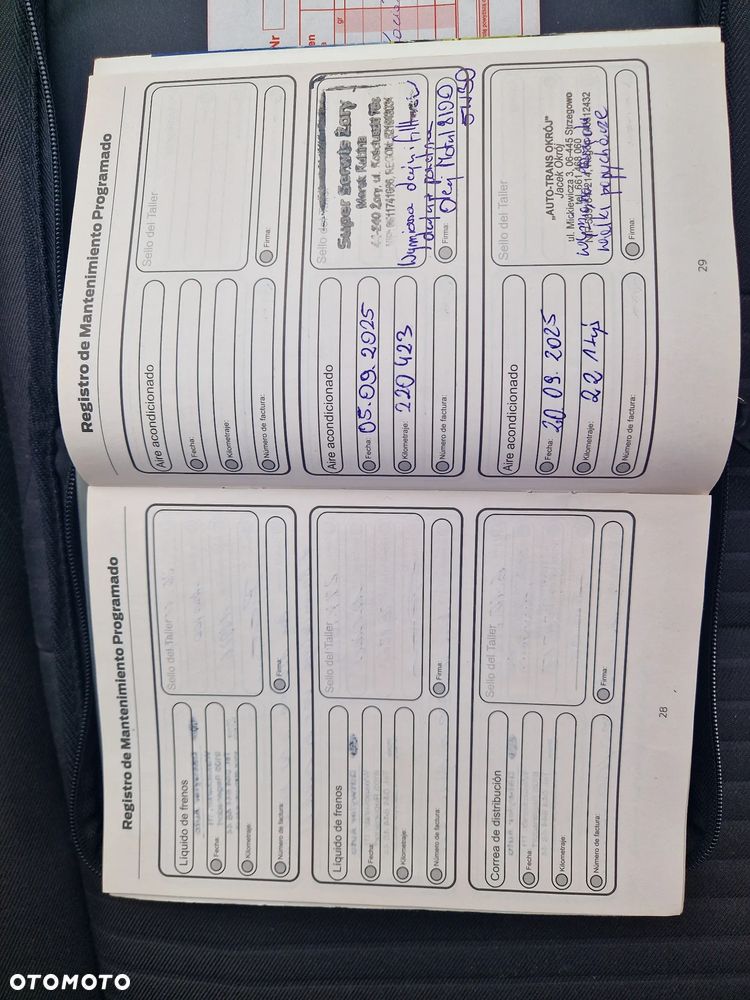 Nr
gr
Registro de Mantenimiento Programado
Aire acondicionado
Fecha:
Kilometraje:
Número de factura:
Sello del Taller
Firma:
Aire acondicionado
Fecha: 05.09.2025
Kilometraje: 220 423
Número de factura:
Sello del
Super Serwis Żory
Marek
Żory, ul. Kościuszki
Wymiana oleju i filtrów
Olej Motul 8100
5W30
Firma:
Aire acondicionado
Fecha: 20 09. 2025
Kilometraje: 22 1 tyś
Número de factura:
Sello del Taller
„AUTO-TRANS OKRÓJ"
Jacek Okrój
ul. Mickiewicza 3, 06-445 Strzegowo
tel. 661 468 060
Firma:
29
Registro de Mantenimiento Programado
Líquido de frenos
Fecha:
Kilometraje:
Número de factura:
Sello del Taller
Firma:
Líquido de frenos
Fecha:
Kilometraje:
Número de factura:
Sello del Taller
Firma:
Correa de distribución
Fecha:
Kilometraje:
Número de factura:
Sello del Taller
Firma:
28
OTOMOTO